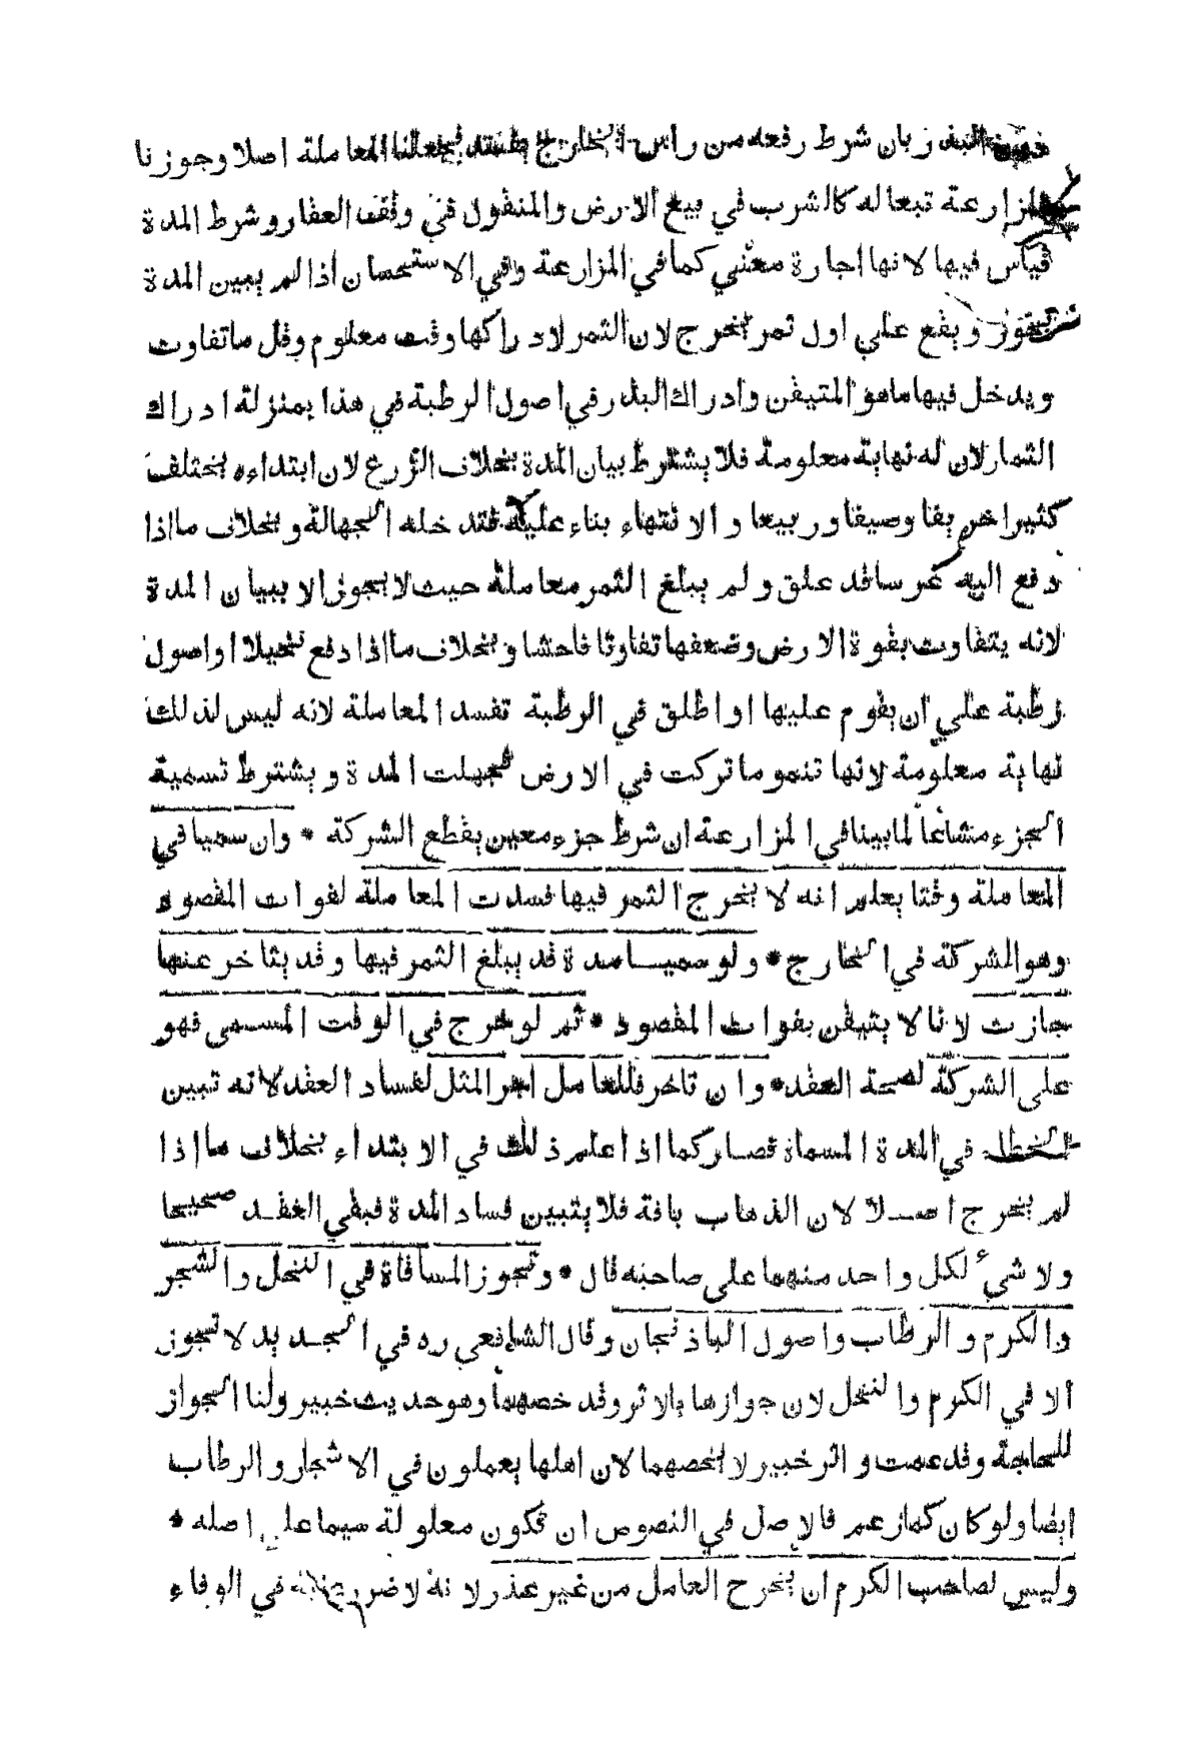 البذر بان شرط رفعه من راس الخارج فجعلنا المعاملة اصلا وجوزنا
المزارعة تبعا له كالشرب في بيع الارض والمنقول في وقف العقار وشرط المدة
قياس فيها لانها اجارة معني كما في المزارعة وفي الاستحسان اذا لم يبين المدة
يجوز ويقع علي اول ثمر يخرج لان الثمر لادراكها وقت معلوم وقل ما تفاوت
ويدخل فيها ما هو المتيقن وادراك البذر في اصول الرطبة في هذا بمنزلة ادراك
الثمار لان له نهاية معلومة فلا يشترط بيان المدة بخلاف الزرع لان ابتداءه يختلف
كثيرا خريفا وصيفا وربيعا والانتهاء بناء عليه فتدخله الجهالة وبخلاف ما اذا
دفع اليه غرسا قد علق ولم يبلغ الثمر معاملة حيث لا يجوز الا ببيان المدة
لانه يتفاوت بقوة الارض وضعفها تفاوتا فاحشا وبخلاف ما اذا دفع نخيلا او اصول
رطبة علي ان يقوم عليها او اطلق في الرطبة تفسد المعاملة لانه ليس لذلك
نهاية معلومة لانها تنمو ما تركت في الارض فجهلت المدة ويشترط تسمية
الجزء مشاعا لما بينا في المزارعة ان شرط جزء معين يقطع الشركة * وان سميا في
المعاملة وقتا يعلم انه لا يخرج الثمر فيها فسدت المعاملة لفوات المقصود
وهو الشركة في الخارج * ولو سميا مدة قد يبلغ الثمر فيها وقد يتاخر عنها
جازت لانا لا يتيقن بفوات المقصود * ثم لو خرج في الوقت المسمى فهو
على الشركة لصحة العقد * وان تاخر فللعامل اجر المثل لفساد العقد لانه تبين
الخطاء في المدة المسماة فصار كما اذا علم ذلك في الابتداء بخلاف ما اذا
لم يخرج اصلا لان الذهاب بافة فلا يتبين فساد المدة فبقي العقد صحيحا
ولا شيء لكل واحد منهما على صاحبه قال * وتجوز المساقاة في النخل والشجر
والكرم والرطاب واصول الباذنجان وقال الشافعي ره في الجديد لا تجوز
الا في الكرم والنخل لان جوازها بالاثر وقد خصهما وهو حديث خيبر ولنا الجواز
للحاجة وقد عمت واثر خيبر لا يخصهما لان اهلها يعملون في الاشجار والرطاب
ايضا ولو كان كما زعم فالاصل في النصوص ان تكون معلولة سيما على اصله *
وليس لصاحب الكرم ان يخرج العامل من غير عذر لانه لا ضرر عليه في الوفاء